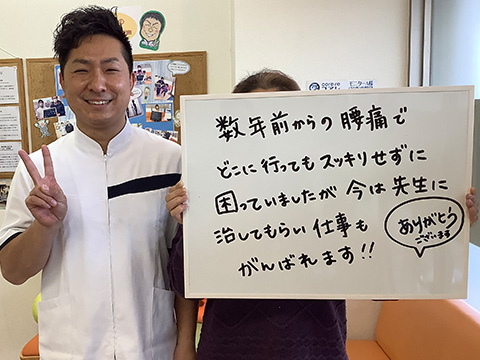 数年前からの腰痛で
どこに行ってもスッキリせずに
困っていましたが今は先生に
治してもらい仕事も
がんばれます!!
ありがとう
ございます